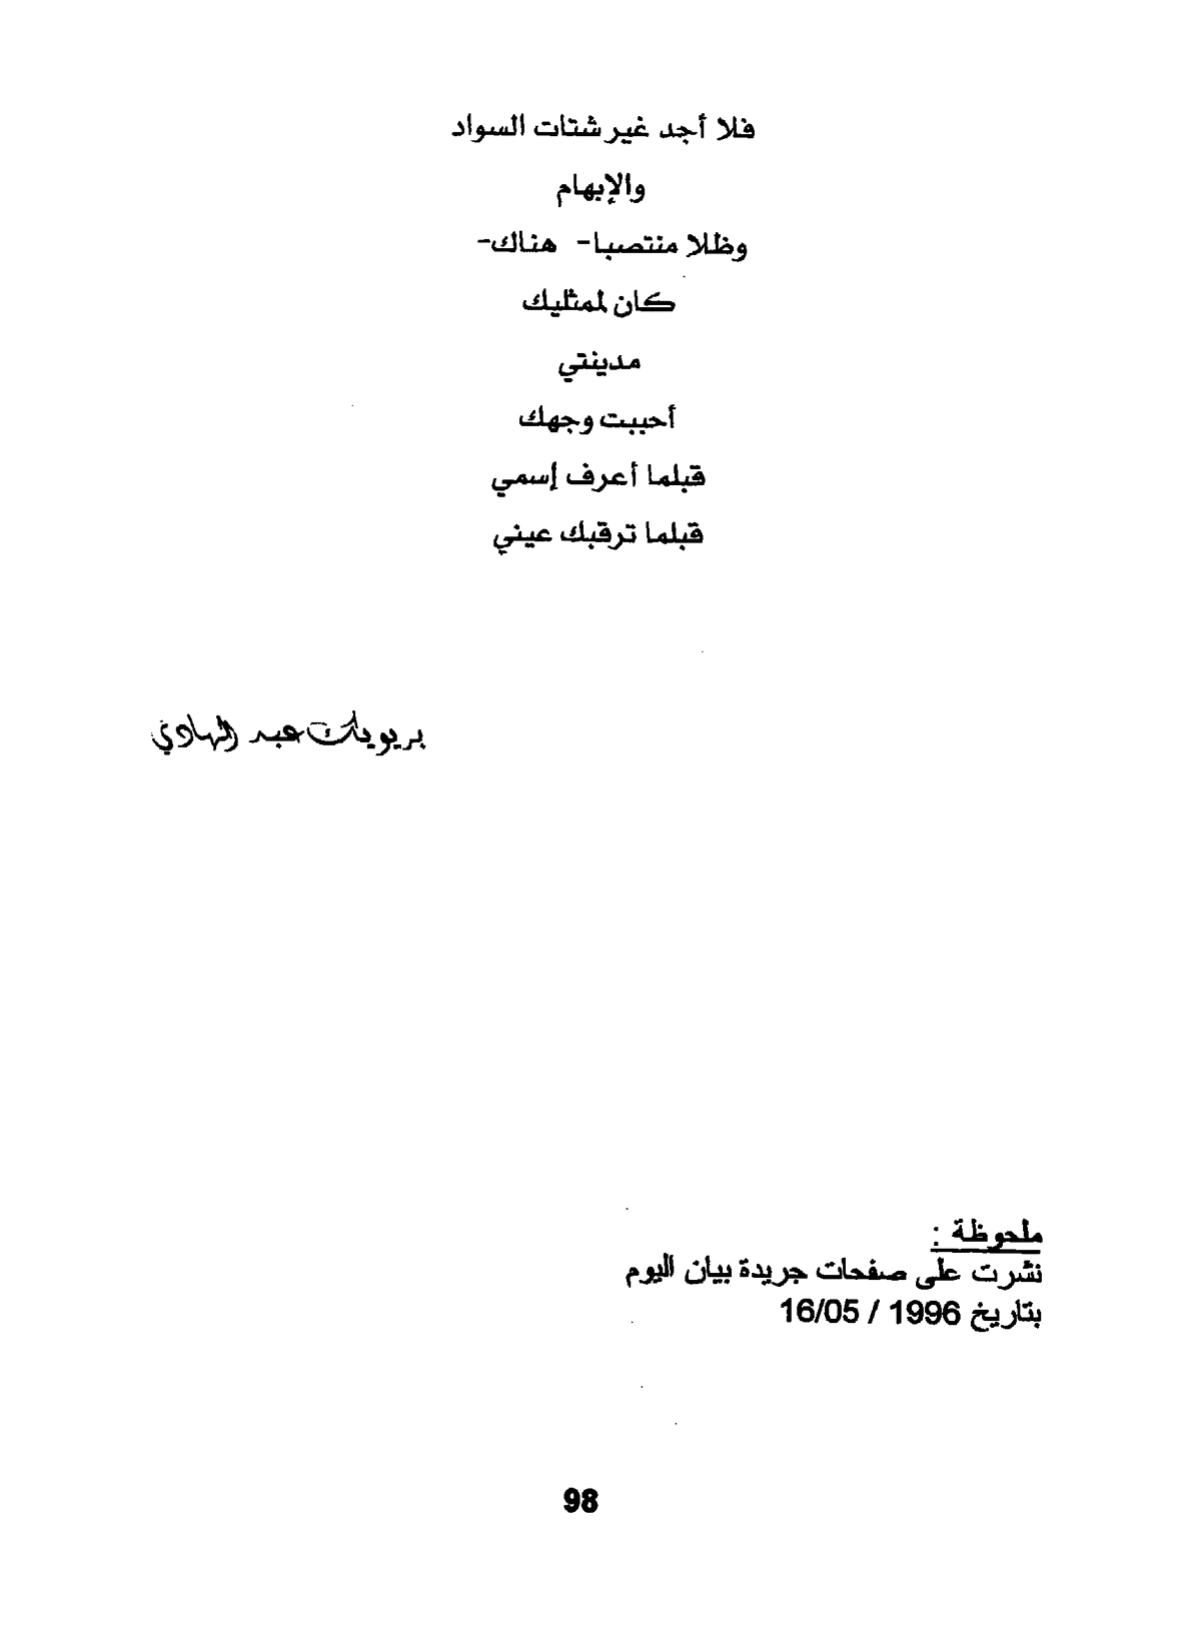 فلا أجد غير شتات السواد
والإبهام
وظلا منتصبا- هناك-
كان لممثليك
مدينتي
أحببت وجهك
قبلما أعرف إسمي
قبلما ترقبك عيني
بريويك عبد الهادي
ملحوظة :
نشرت على صفحات جريدة بيان اليوم
بتاريخ 1996 / 16/05
98